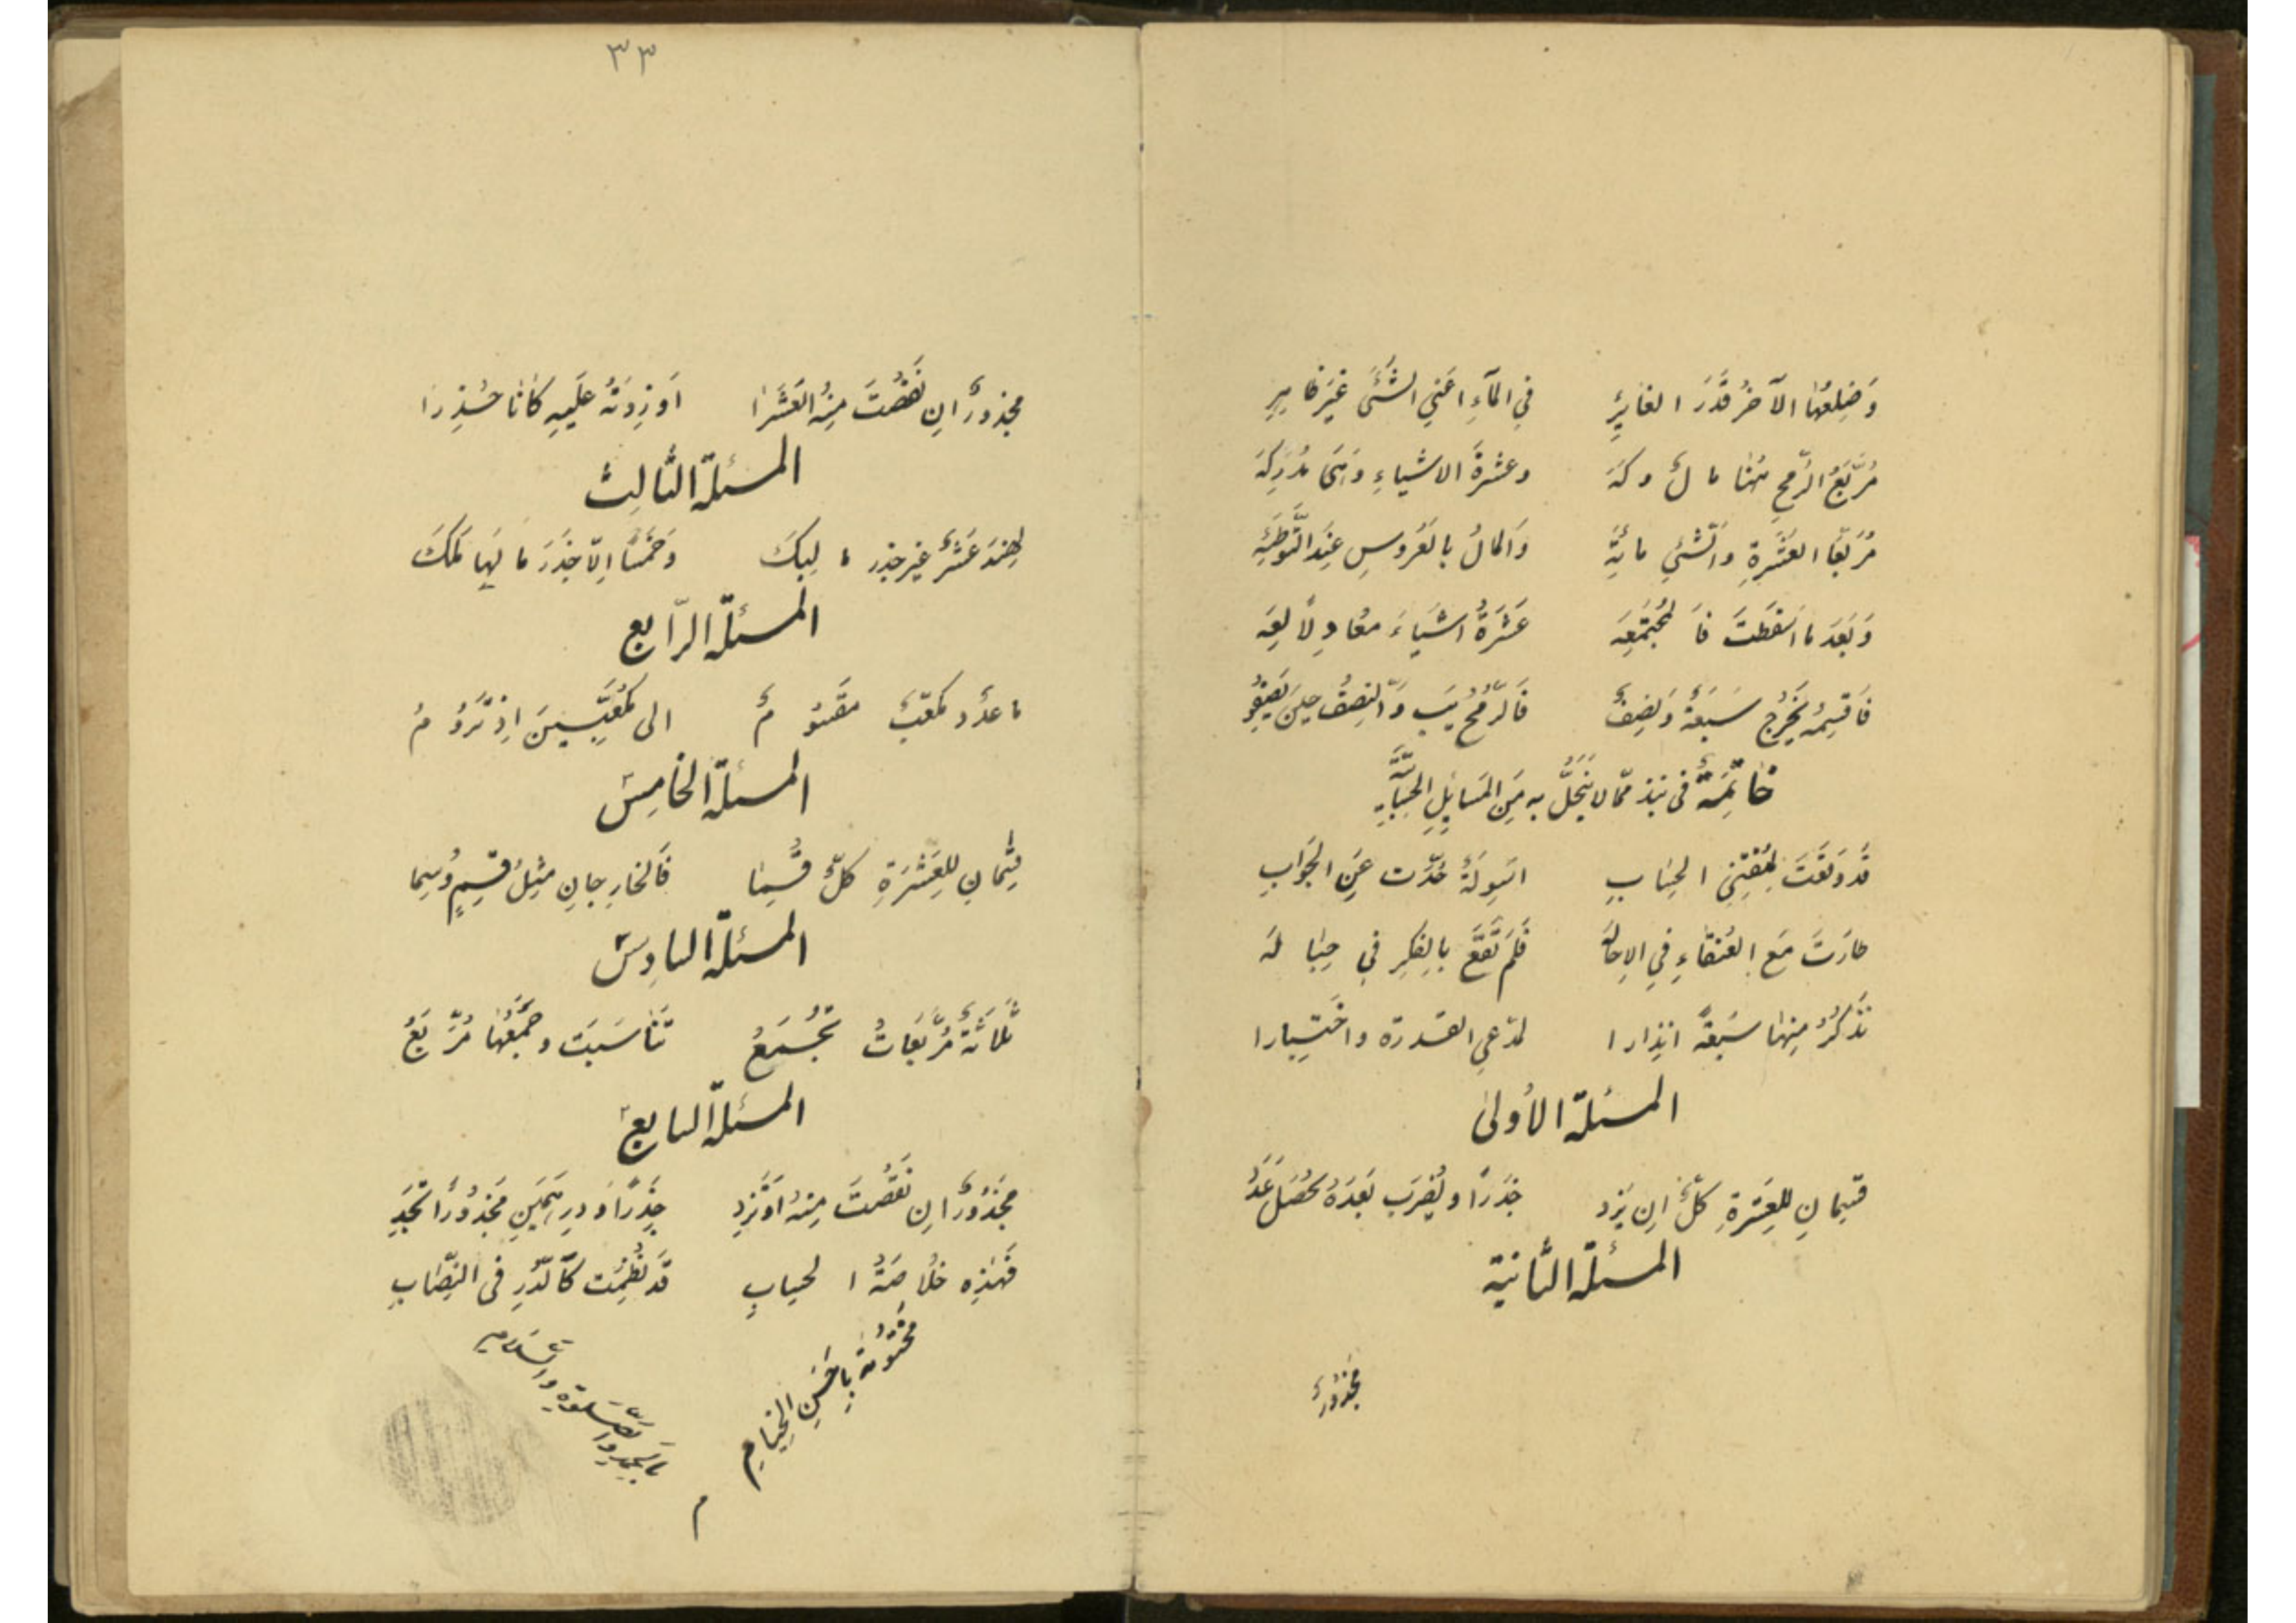 وَضِلعُهَا الآخرُ قَدَرَ الغائِرِ في المآءِ اعَنِي الشَّىَٔ غَيرَ ظاهِرِ
مُربَّعُ الرُّمحِ هُنا مالٌ وكَهَ وعشرةَ الاشياءِ وَهىَ مُدرِكَه
مُربّعا العَشَرةِ والشئِ مائَهِ وَالمالُ بالعَرُوسِ عِندَ التَّوطِئَه
وَبَعَدَ ما اسَقَطتَ فَالمُجتَمَعِه عَشَرَةُ اشيَاءَ معُادِلًا لعِهَ
فَاقسِمْه يَخرُج سَبعَةٌ وَنِصفٌ فَالرُّمحُ يَب وَالنِصفُ حِينَ
خاتِمَةٌ فى نبذ ممّا لا يَنحَلُّ به مِنَ المَسائِلِ الحِسَابِيَّةِ
قَد وَقَعَت لِمُقتِنِي الحِسَابِ اسَوِلَةٌ عَن الجَوَابِ
طارَت مَع العَنقاءِ في الاِحالَه فَلَم تَقَع بالفِكِر فِي حِبَالَه
نَذكُرُ مِنها سَبعَةً انذِارا لمدّعِي القدرة واختيارا
المسئلة الأولىٰ
قسِمانِ للعَشَرةِ كلٌّ اِن يَزِد جَذَرًا ويُضرَب بَعدَهُ يحَصُل عَدَد
المسئلة الثّانية
مَجَذُورٌ
٣٣
مجذورٌ انِ نَقَصتَ مِنُه العَشَرا اَو زِدتَه عَلَيهِ كانا جُذِرا
المسئلة الثّالِث
لهِنِد عَشرٌ غير جذر ما لِبَك وَخَمسًا الّا جَذَر ما لَها مَلَك
المسئلة الرّابع
ما عدَد مكعّبٌ مقَسُومٌ الى مُكعّبَينِ اِذ تَرُومُ
المسئلة الخامِس
قسِمانِ للعَشرَةِ كلٌّ قُسِما فَالخارِجانِ مثِلُ قسِمٍ وُسِما
المسئلة السادِس
ثلاثَةٌ مُربَّعَاتُ تُجُمعُ تَناسَبَت وجَمعُها مُربَّعُ
المسئلة السابع
مَجَذُورٌ انِ نَقَصتَ مِنهُ اَو تَزِد جَذرًا وَدِرهَمَينِ مَجذُورًا تَجِد
فَهذِه خلُاصَةُ الحسابِ قَد نُظِمَت كالدُّرِ فى النِّصابِ
مَختُومَة بِاحَسَنِ الخِتامِ
بالحَمدِ والصَّلوةِ والسَّلامِ
م